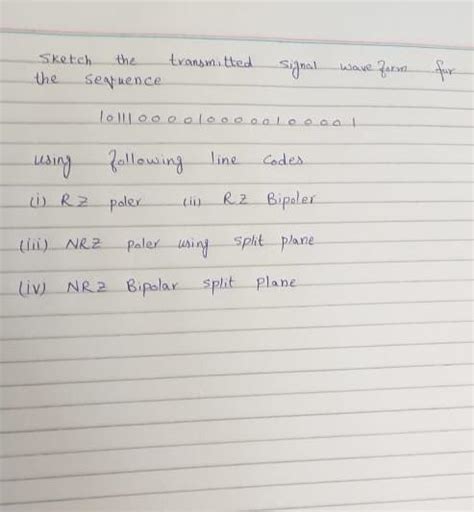 Sketch the transmitted signal wave form for
the sequence
101110000100000100001
using following line codes
(i) RZ poler (ii) RZ Bipoler
(iii) NRZ poler using split plane
(iv) NRZ Bipolar split plane